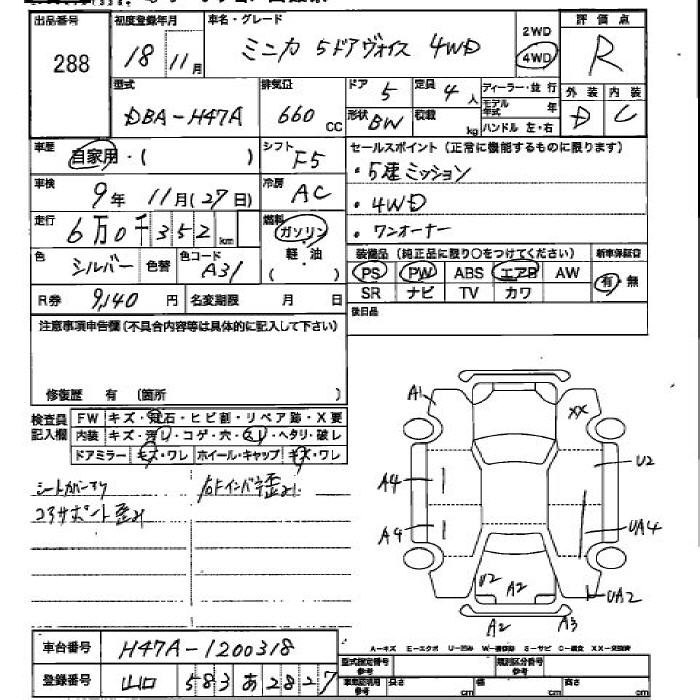 出品番号 初度登録年月 車名・グレード 2WD 評価点
288 18年11月 ミニカ 5ドアヴォイス 4WD 4WD R
型式 排気量 ドア 5 定員 4人 ディーラー・並行 外装 内装
DBA-H47A 660 CC 形状 BW 積載 kg モデル年式 年 D C
ハンドル 左・右
車歴 自家用・( ) シフト F5 セールスポイント(正常に機能するものに限ります)
車検 9年 11月(27日) 冷房 AC ・5速ミッション
走行 6万0千352km 燃料 ガソリン ・4WD
軽・油 ・ワンオーナー
色 シルバー 色替 色コード A31 ( ) 装備品(純正品に限り○をつけてください) 新車保証書
PS PW ABS エアB AW 有・無
R券 9,140円 名変期限 月 日 SR ナビ TV カワ
注意事項申告欄(不具合内容等は具体的に記入して下さい) 後日品
修復歴 有 (箇所 )
検査員記入欄 FW キズ・飛石・ヒビ割・リペア跡・X要
内装 キズ・汚レ・コゲ・穴・スレ・ヘタリ・破レ
ドアミラー キズ・ワレ ホイール・キャップ キズ・ワレ
A1 XX
U2
A4
A4 UA4
UA2
U2 A2
A2 A3
コアサポート歪み
車台番号 H47A-1200318
A-キズ E-エクボ U-凹み W-補修跡 S-サビ C-腐食 XX-交換済
登録番号 山口 583 あ 2827
型式指定番号 類別区分番号
長さ cm 幅 cm 高さ cm